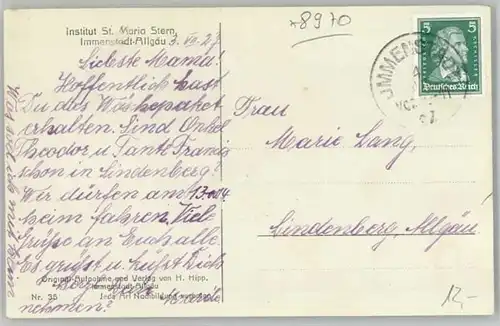 *8970
Institut St. Maria Stern,
Immenstadt-Allgäu 3. VII. 27
Liebste Mama!
Hoffentlich hast
Du das Wäschpaket
erhalten. Sind Onkel
Theodor u. Tante
schon in Lindenberg?
Wir dürfen am 13. od. 14.
heim fahren. Viele
Grüße an Euch alle.
Es grüßt u. küßt Dich
Original-Aufnahme und Verlag von H. Hipp,
Immenstadt-Allgäu
Nr. 35 Jede Art Nachbildung
nehmen?
5 5
Deutsches Reich
IMMENSTADT
Frau
Marie Lang,
Lindenberg, Allgäu
12,-